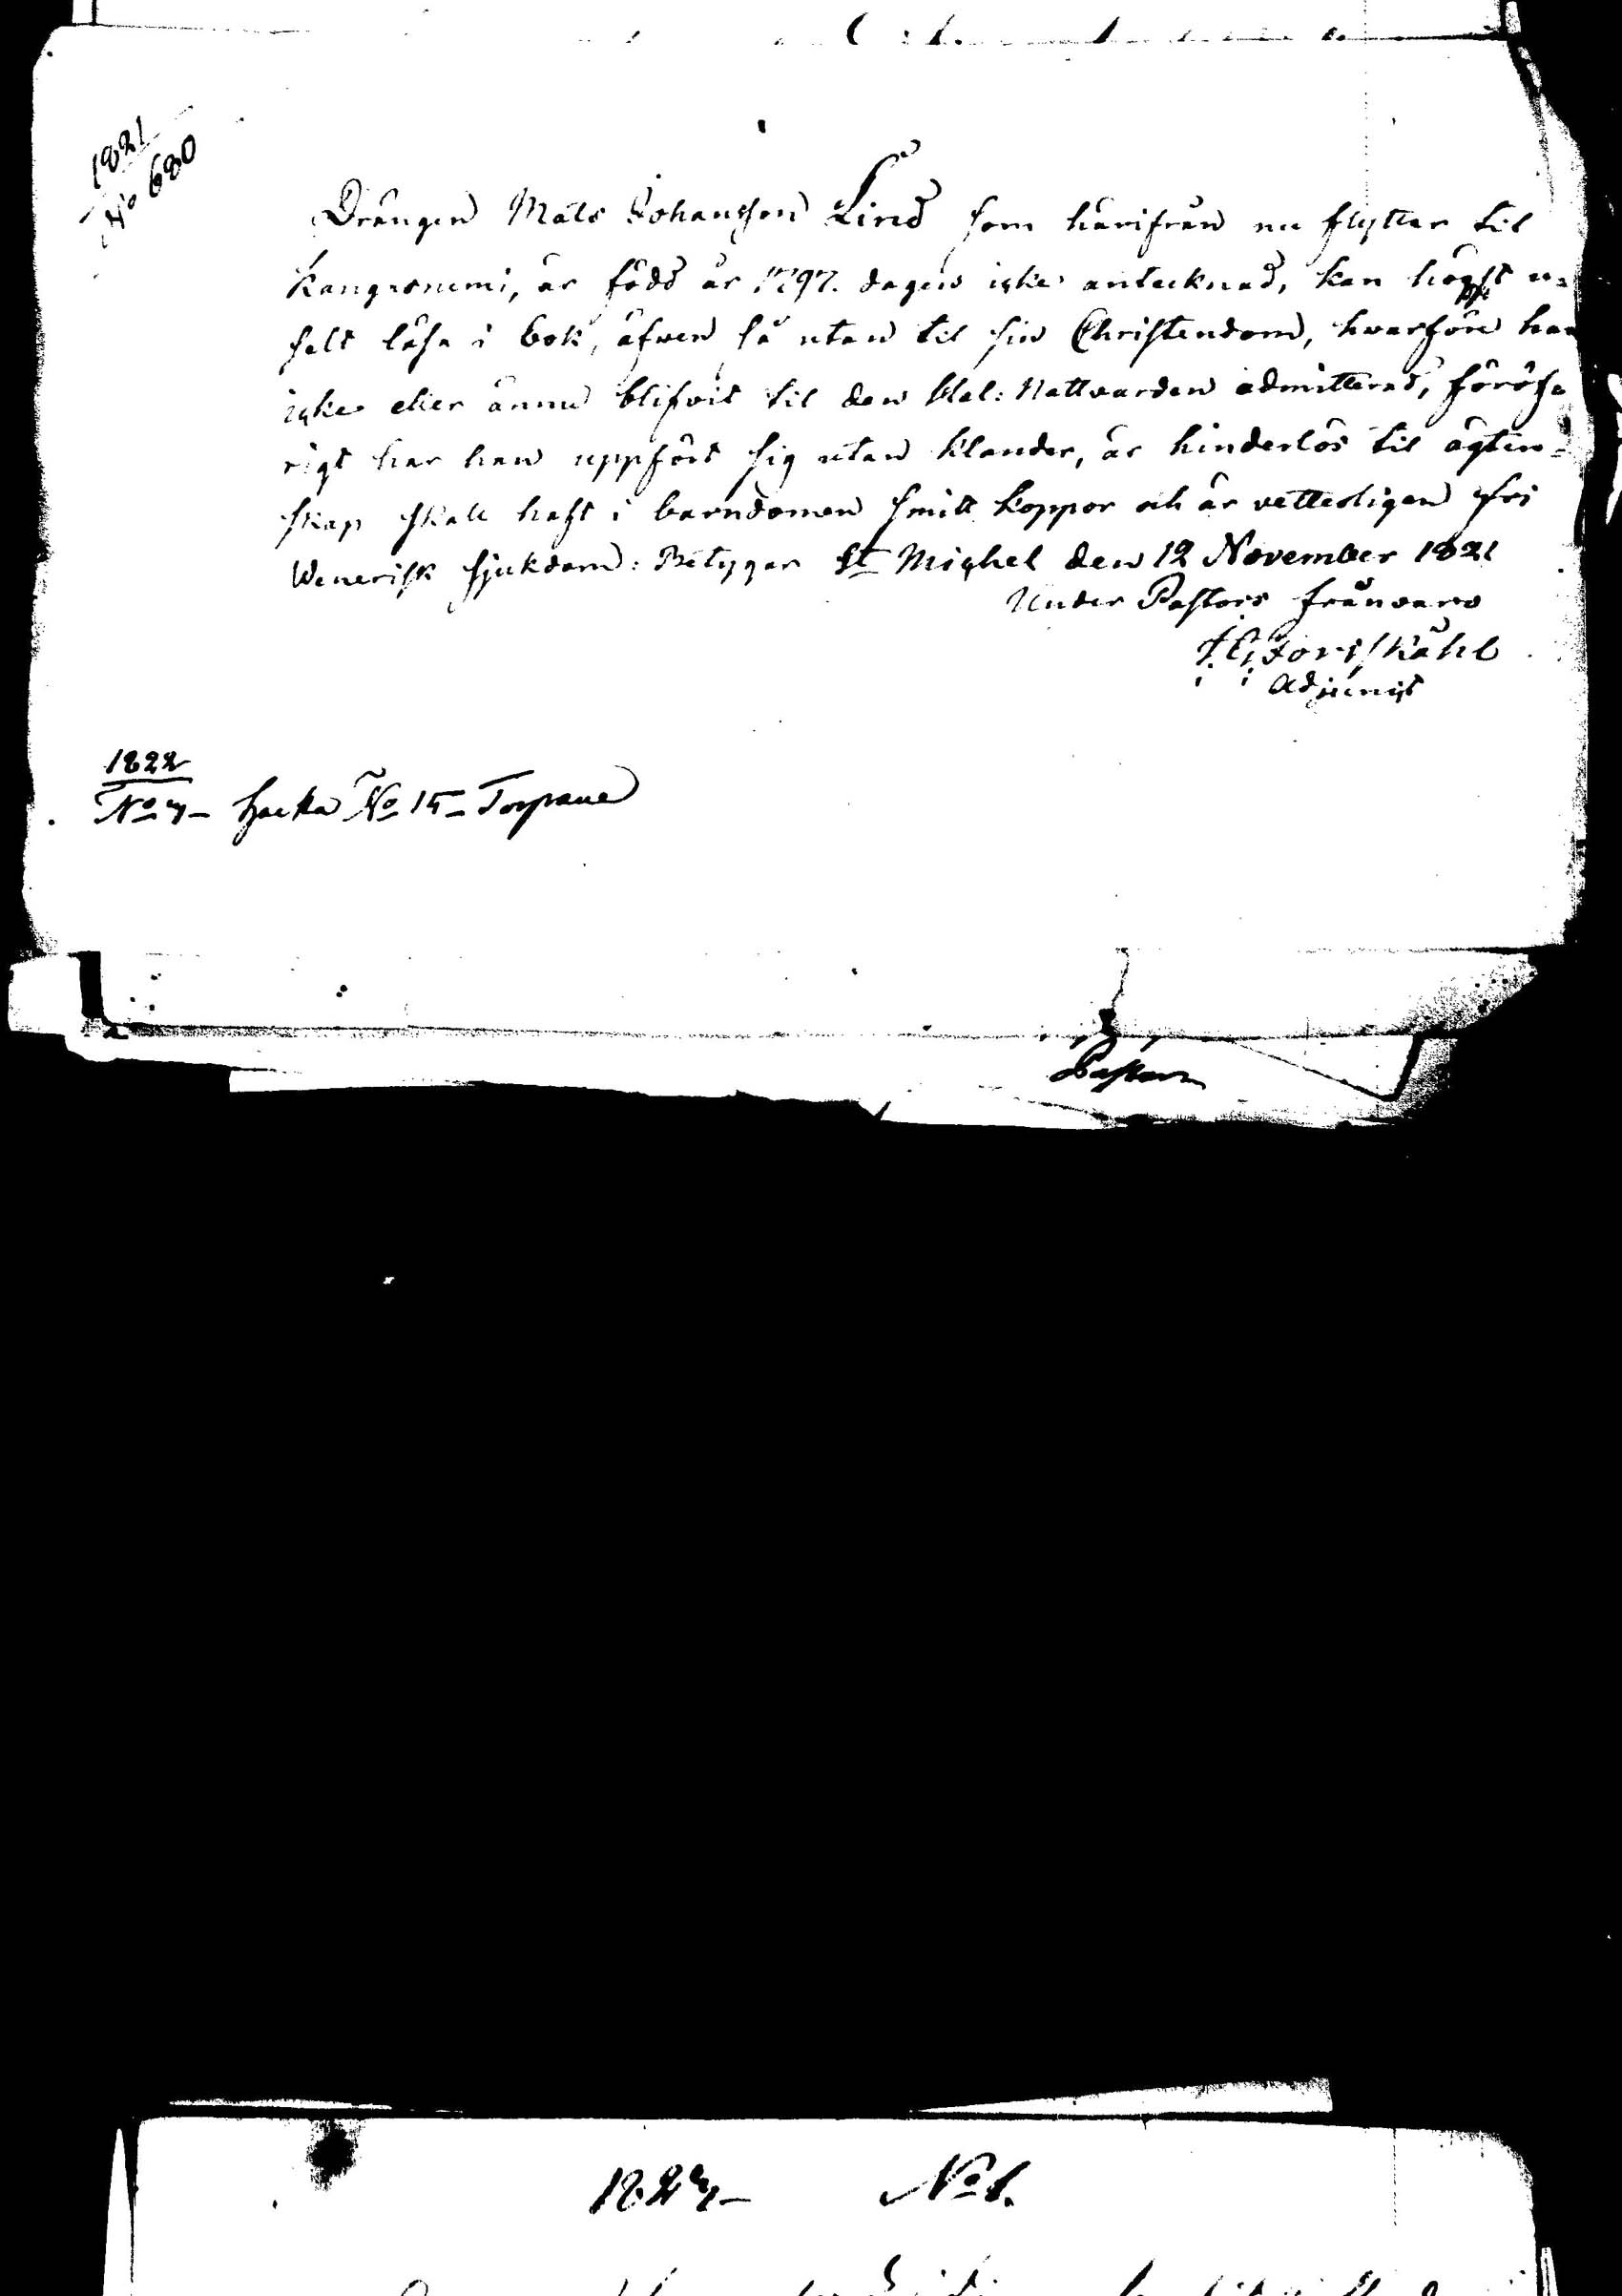 1821
No 680
Drängen Mats Johansson Lind som härifrån nu flyttar til
Kangasnemi, är född år 1797. dagen icke antecknad, kan högst u=
selt läsa i bok, äfven så utan til sin Christendom, hvarföre han
icke eller ännu blifvit til den Hel: Nattvarden admitterad, föröf=
rigt har han uppfört sig utan klander, är hinderlös til ägten=
skap skall haft i barndomen smitt koppor och är vetterligen fri
Wenerisk sjukdom: Betygar St Michel den 12 November 1821
Under Pastors frånvaro
Forsskåhl
Adjunct
1822
No 7 - Hacka No 15 - Torpane
Pastor
182 No 1.